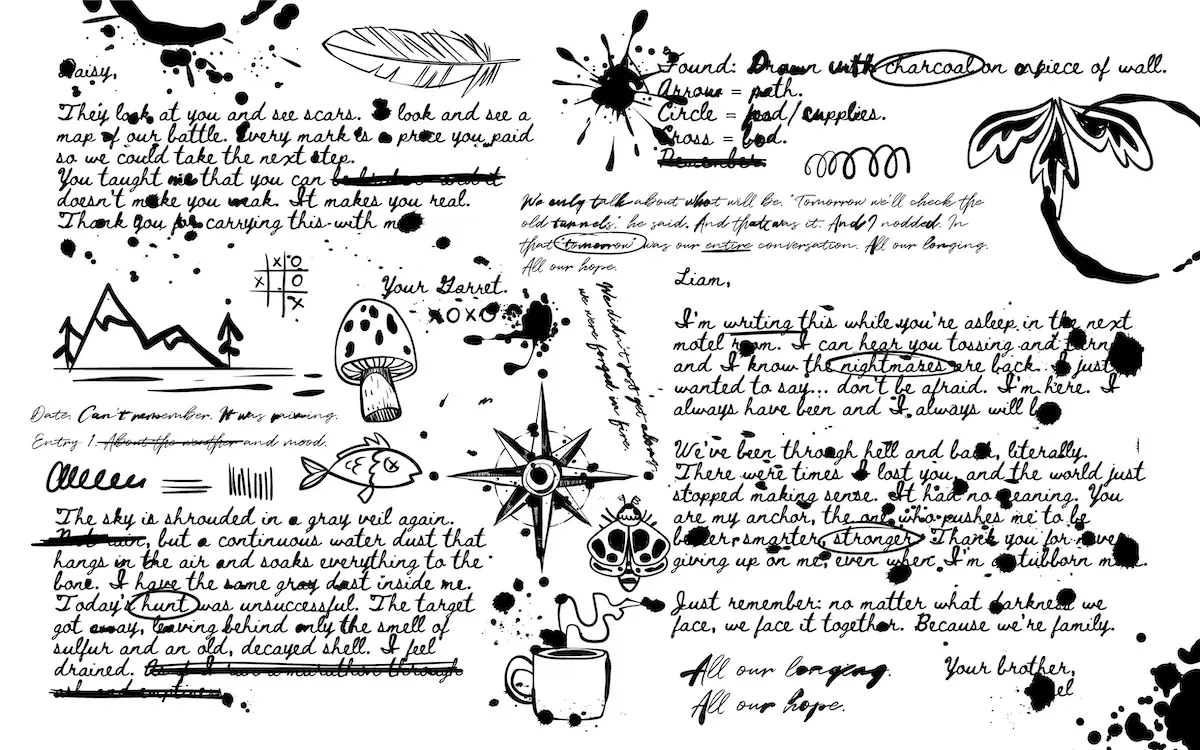 Daisy,
They look at you and see scars. I look and see a
map of our battle. Every mark is a price you paid
so we could take the next step.
You taught me that you can
doesn't make you weak. It makes you real.
Thank you for carrying this with
Your Garret.
XOXO
X O
X O
X
Date. Can't remember. It was raining.
Entry 1. About the weather and mood.
The sky is shrouded in a gray veil again.
Not rain, but a continuous water dust that
hangs in the air and soaks everything to the
bone. I have the same gray dust inside me.
Today's hunt was unsuccessful. The target
got away, leaving behind only the smell of
sulfur and an old, decayed shell. I feel
drained. As if I ran a marathon through
ash and emptiness
Found: Drawn with charcoal on a piece of wall.
Arrow = path.
Circle = food/supplies.
Cross = bad.
Remember.
We only talk about what will be. 'Tomorrow we'll check the
old tunnels', he said. And that was it. And I nodded. In
that 'tomorrow' was our entire conversation. All our longing.
All our hope.
We didn't just get along,
we were forged in fire.
Liam,
I'm writing this while you're asleep in the next
motel room. I can hear you tossing and turning
and I know the nightmares are back. I just
wanted to say... don't be afraid. I'm here. I
always have been and I always will be
We've been through hell and back, literally.
There were times I lost you, and the world just
stopped making sense. It had no meaning. You
are my anchor, the one who pushes me to be
better, smarter, stronger. Thank you for never
giving up on me, even when I'm a stubborn
Just remember: no matter what darkness we
face, we face it together. Because we're family.
Your brother,
el
All our longing.
All our hope.